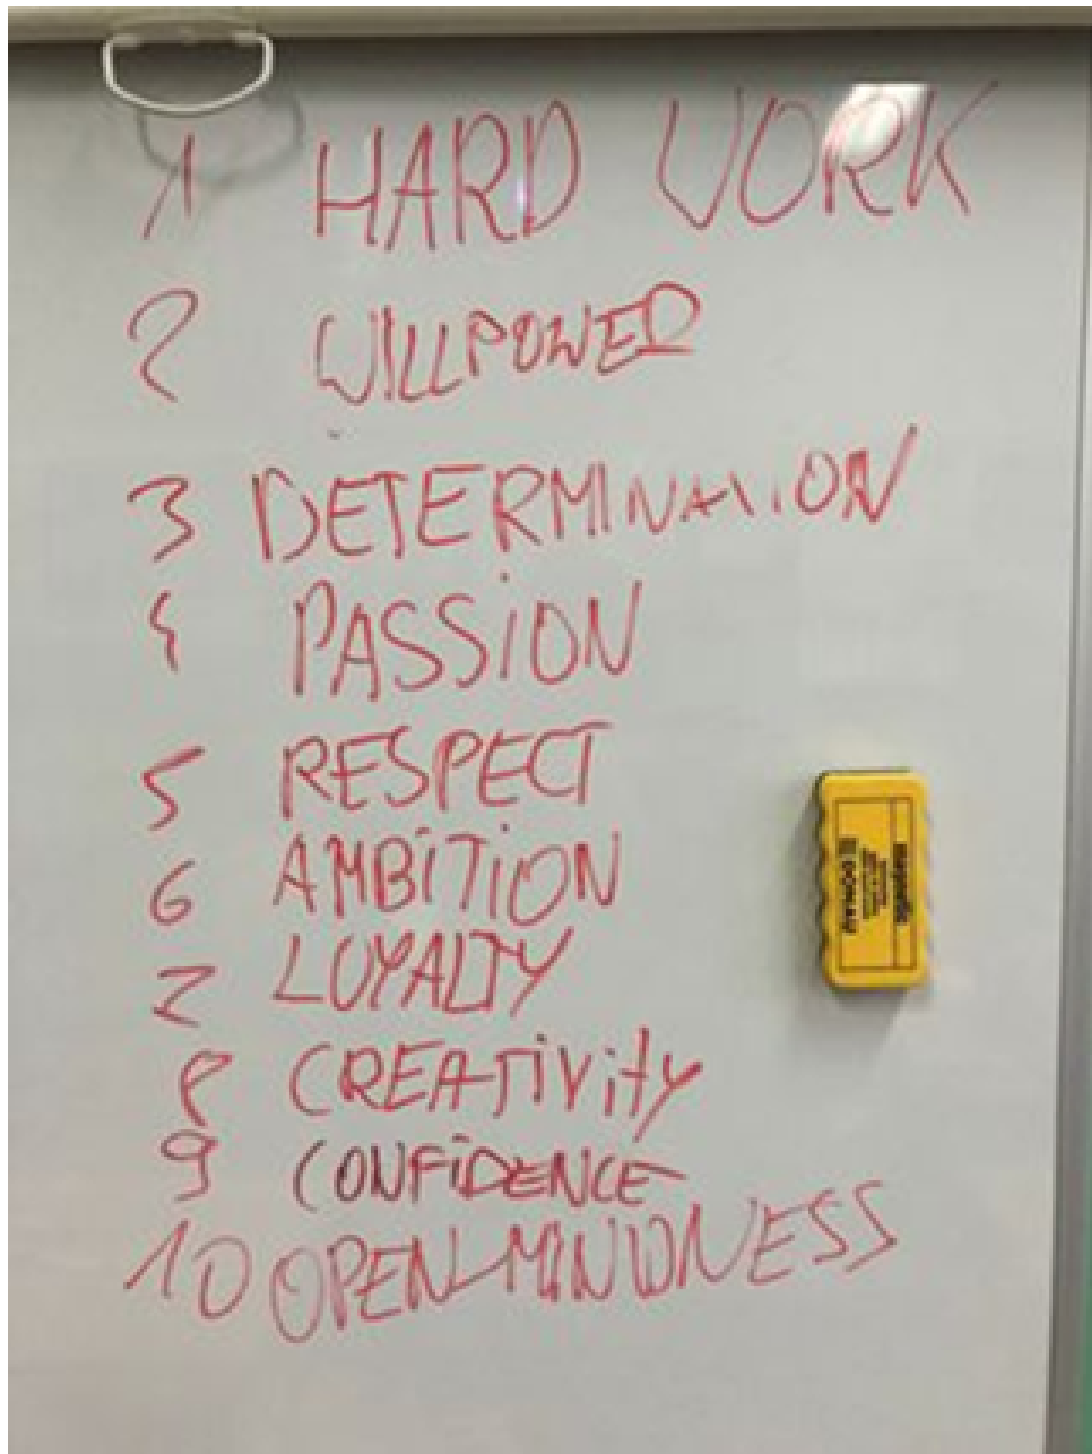 1 HARD WORK
2 WILLPOWER
3 DETERMINATION
4 PASSION
5 RESPECT
6 AMBITION
7 LOYALTY
8 CREATIVITY
9 CONFIDENCE
10 OPEN-MINDNESS
magnetic
DONAU